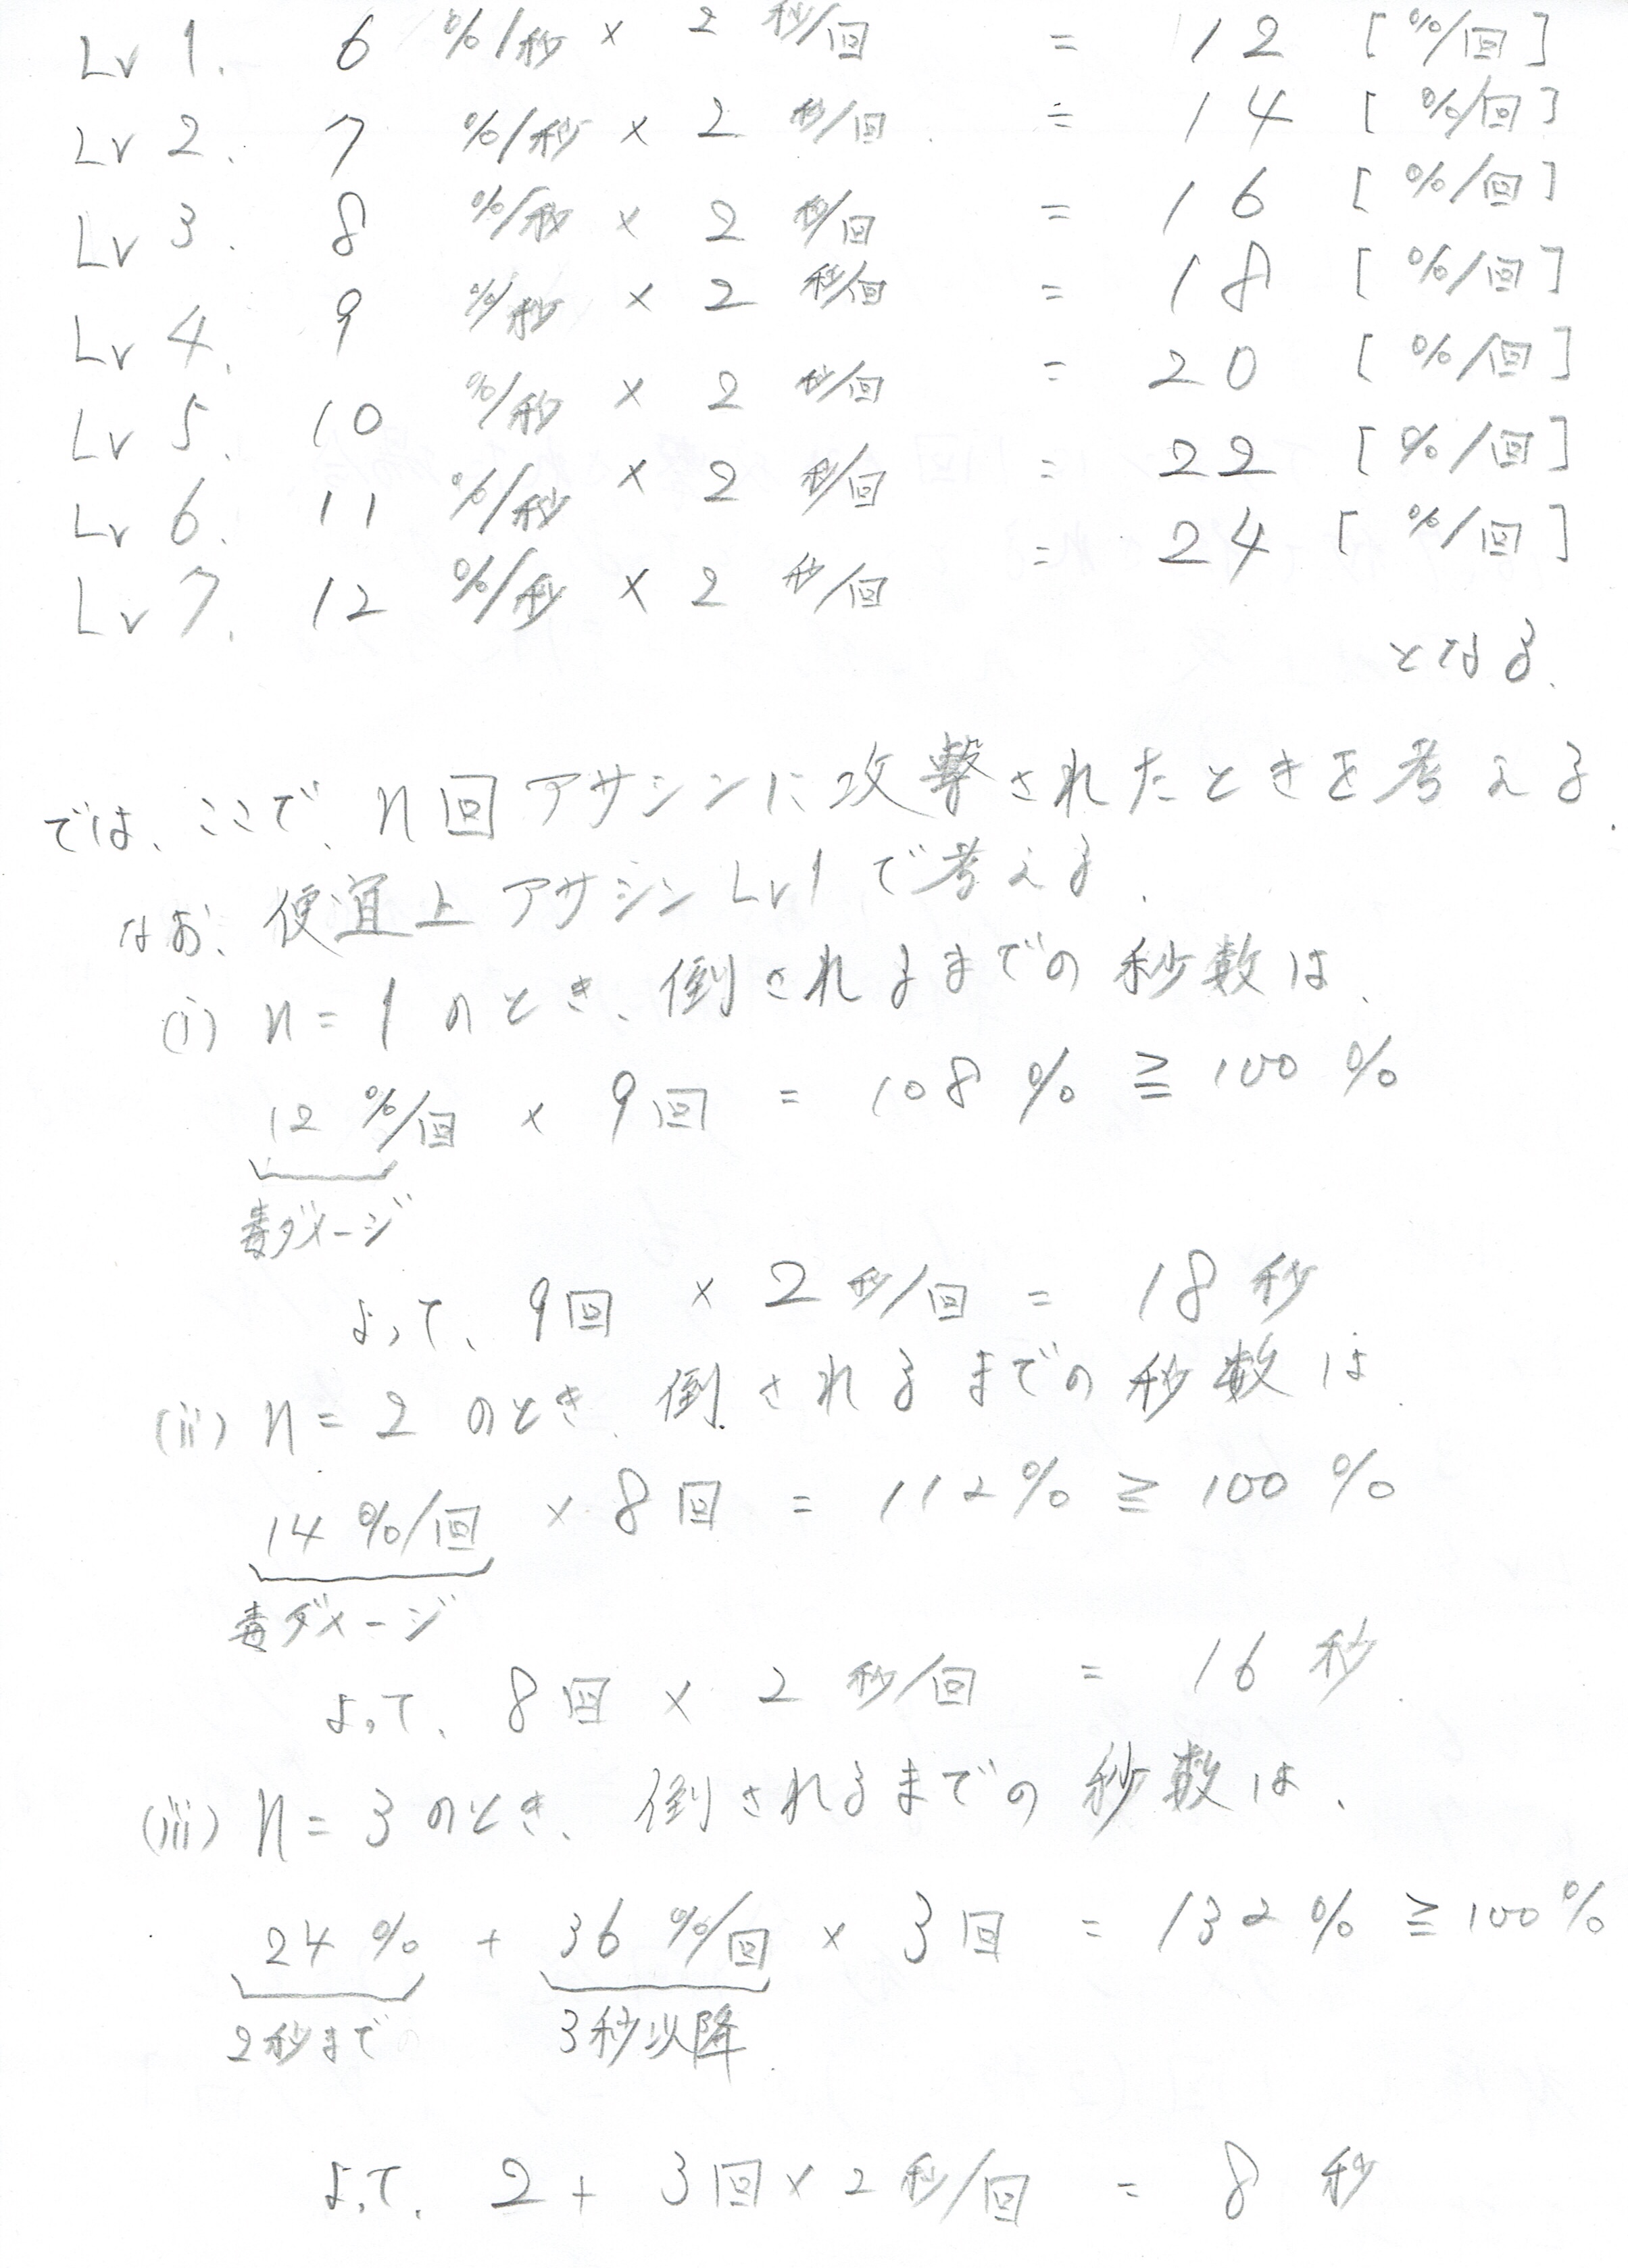 Lv 1. 6 %/秒 × 2 秒/回 = 12 [%/回]
Lv 2. 7 %/秒 × 2 秒/回 = 14 [%/回]
Lv 3. 8 %/秒 × 2 秒/回 = 16 [%/回]
Lv 4. 9 %/秒 × 2 秒/回 = 18 [%/回]
Lv 5. 10 %/秒 × 2 秒/回 = 20 [%/回]
Lv 6. 11 %/秒 × 2 秒/回 = 22 [%/回]
Lv 7. 12 %/秒 × 2 秒/回 = 24 [%/回]
となる.
では、ここで、n回アサシンに攻撃されたときを考える.
なお、便宜上アサシンLv1で考える.
(i) n=1のとき、倒されるまでの秒数は、
12 %/回 × 9回 = 108 % ≧ 100 %
毒ダメージ
よって、9回 × 2 秒/回 = 18 秒
(ii) n=2のとき、倒されるまでの秒数は
14 %/回 × 8回 = 112% ≧ 100 %
毒ダメージ
よって、8回 × 2 秒/回 = 16 秒.
(iii) n=3のとき、倒されるまでの秒数は、
24 % + 36 %/回 × 3回 = 132 % ≧ 100%
2秒まで 3秒以降
よって、2 + 3回 × 2秒/回 = 8 秒